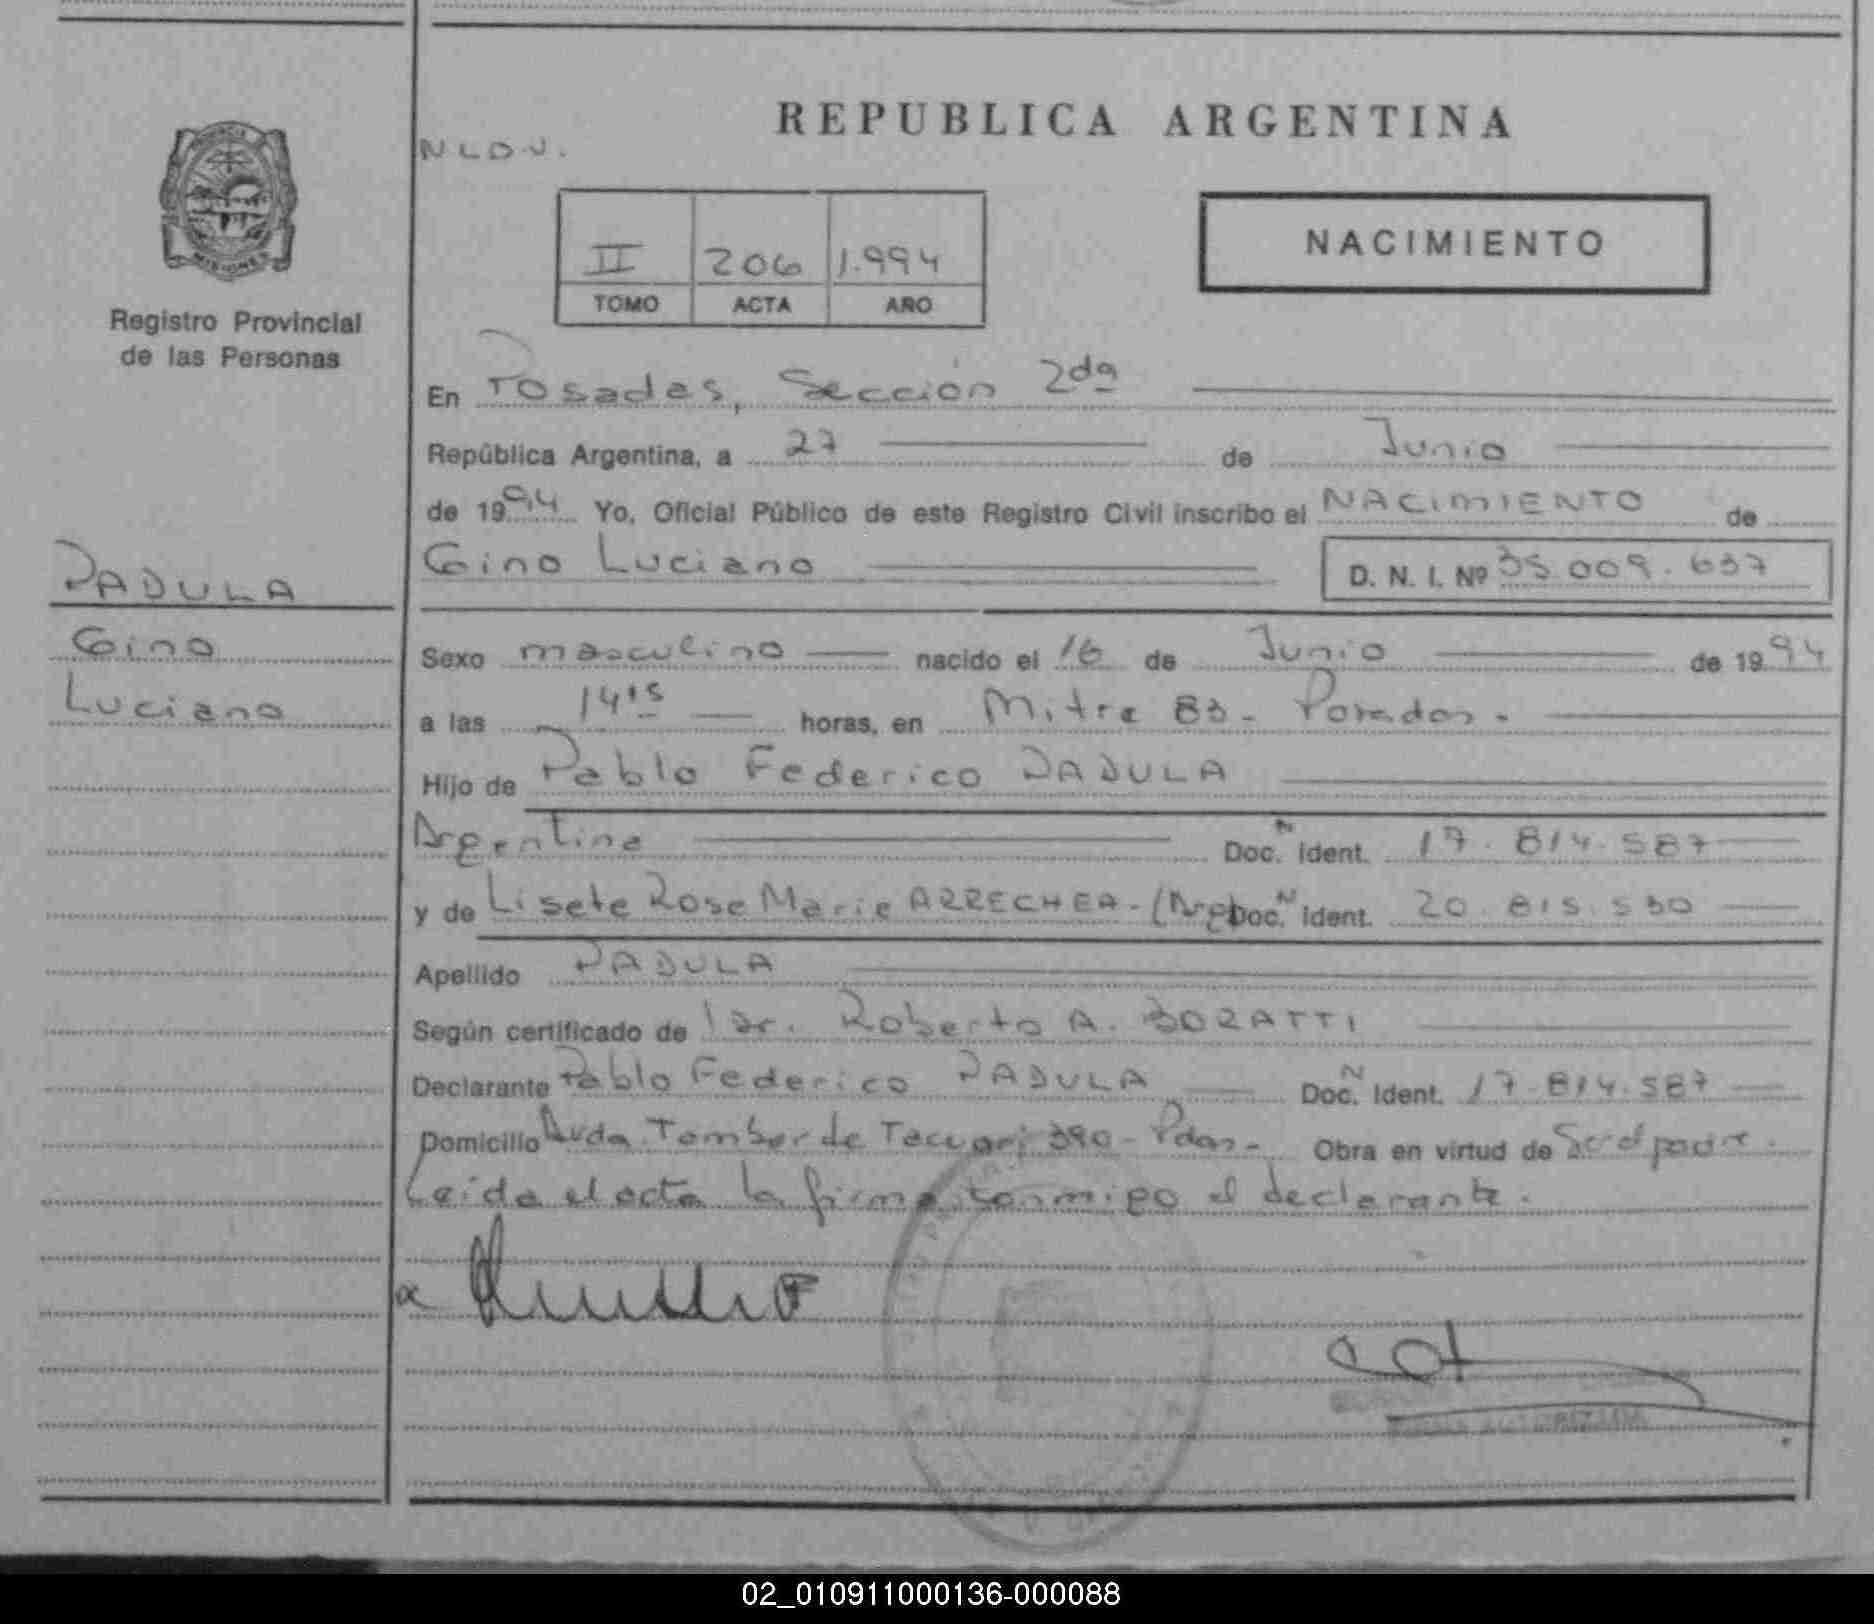 REPUBLICA ARGENTINA
N L D U.
II 206 1.994
TOMO ACTA AÑO
NACIMIENTO
MISIONES
Registro Provincial
de las Personas
En Posadas, Sección 2da
República Argentina, a 27 de Junio
de 1994 Yo, Oficial Público de este Registro Civil inscribo el NACIMIENTO de
Gino Luciano D. N. I. Nº 35.009.637
PADULA
Gino
Luciano
Sexo masculino nacido el 16 de Junio de 1994
a las 14 15 horas, en Mitre 83 - Posadas.
Hijo de Pablo Federico PADULA
Argentina Doc. N Ident. 17.814.587
y de Lisete Rose Marie ARRECHEA - (Arg) Doc. N Ident. 20.815.530
Apellido PADULA
Según certificado de Dr. Roberto A. BORATTI
Declarante Pablo Federico PADULA Doc. N Ident. 17.814.587
Domicilio Avda. Tambor de Tacuari 390 - Pdas - Obra en virtud de Ser el padre.
Leída el acta la firma conmigo el declarante.
02_010911000136-000088